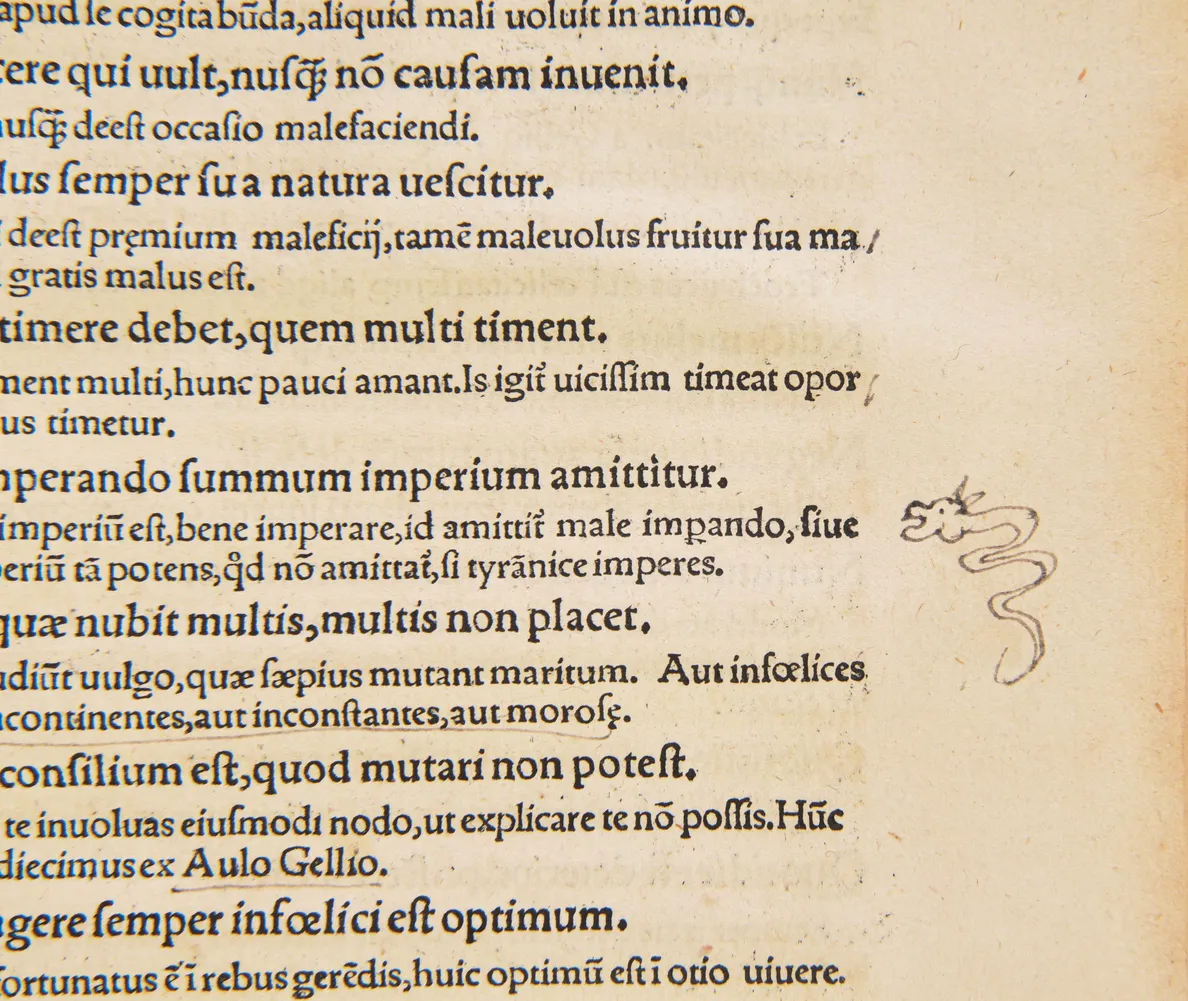 apud se cogitabūda,aliquid mali uoluit in animo.
cere qui uult,nusꝙ̃ nō causam inuenit.
usꝙ̃ deest occasio malefaciendi.
lus semper sua natura uescitur.
deest pręmium maleficij,tamē maleuolus fruitur sua ma/
gratis malus est.
timere debet,quem multi timent.
ment multi,hunc pauci amant.Is igit̃ uicissim timeat opor/
us timetur.
mperando summum imperium amittitur.
imperiū est,bene imperare,id amittit̃ male imꝑando,siue
eriū tā potens,qd̊ nō amittat̃,si tyrānice imperes.
quæ nubit multis,multis non placet.
udiūt uulgo,quæ sæpius mutant maritum. Aut infœlices
continentes,aut inconstantes,aut morosę.
consilium est,quod mutari non potest.
te inuoluas eiusmodi nodo,ut explicare te nō possis.Hūc
diecimus ex Aulo Gellio.
gere semper infœlici est optimum.
fortunatus ē ī rebus gerēdis,huic optimū est ī otio uiuere.